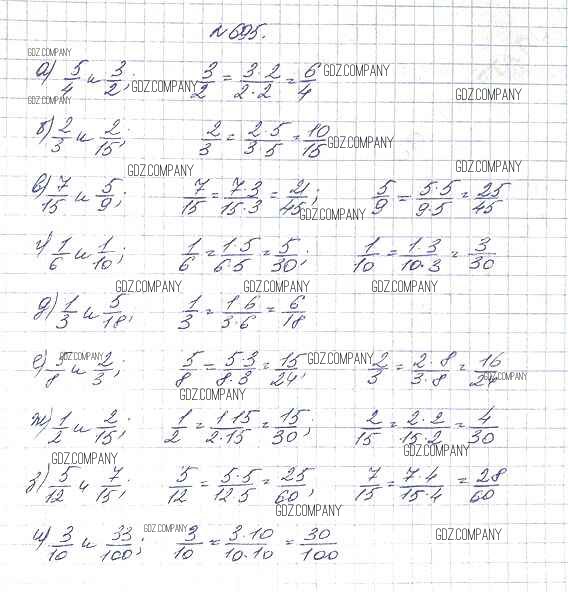 № 695.
GDZ.COMPANY
а) 5/4 и 3/2; GDZ.COMPANY 3/2 = 3·2/2·2 = 6/4 GDZ.COMPANY
GDZ.COMPANY GDZ.COMPANY
б) 2/3 и 2/15; 2/3 = 2·5/3·5 = 10/15 GDZ.COMPANY
GDZ.COMPANY GDZ.COMPANY
в) 7/15 и 5/9; 7/15 = 7·3/15·3 = 21/45; 5/9 = 5·5/9·5 = 25/45
GDZ.COMPANY
г) 1/6 и 1/10; 1/6 = 1·5/6·5 = 5/30; 1/10 = 1·3/10·3 = 3/30
GDZ.COMPANY GDZ.COMPANY GDZ.COMPANY
д) 1/3 и 5/18; 1/3 = 1·6/3·6 = 6/18
е) 5/8 и 2/3; GDZ.COMPANY 5/8 = 5·3/8·3 = 15/24; GDZ.COMPANY 2/3 = 2·8/3·8 = 16/24 GDZ.COMPANY
GDZ.COMPANY
ж) 1/2 и 2/15; 1/2 = 1·15/2·15 = 15/30; 2/15 = 2·2/15·2 = 4/30
GDZ.COMPANY GDZ.COMPANY
з) 5/12 и 7/15; 5/12 = 5·5/12·5 = 25/60; 7/15 = 7·4/15·4 = 28/60
GDZ.COMPANY
и) 3/10 и 33/100; GDZ.COMPANY 3/10 = 3·10/10·10 = 30/100 GDZ.COMPANY